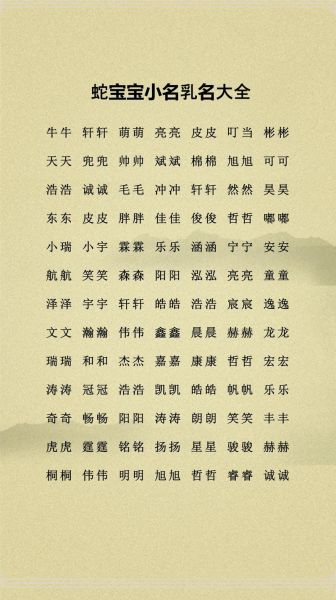 蛇宝宝小名乳名大全
牛牛 轩轩 萌萌 亮亮 皮皮 叮当 彬彬
天天 兜兜 帅帅 斌斌 棉棉 旭旭 可可
浩浩 诚诚 毛毛 冲冲 轩轩 然然 昊昊
东东 皮皮 胖胖 佳佳 俊俊 哲哲 嘟嘟
小瑞 小宇 霖霖 乐乐 涵涵 宁宁 安安
航航 笑笑 森森 阳阳 泓泓 亮亮 童童
泽泽 宇宇 轩轩 皓皓 浩浩 宸宸 逸逸
文文 瀚瀚 伟伟 鑫鑫 晨晨 赫赫 龙龙
瑞瑞 和和 杰杰 嘉嘉 康康 哲哲 宏宏
涛涛 冠冠 浩浩 凯凯 皓皓 帆帆 乐乐
奇奇 畅畅 阳阳 涛涛 朗朗 笑笑 丰丰
虎虎 霆霆 铭铭 扬扬 星星 骏骏 赫赫
桐桐 伟伟 明明 旭旭 哲哲 睿睿 诚诚